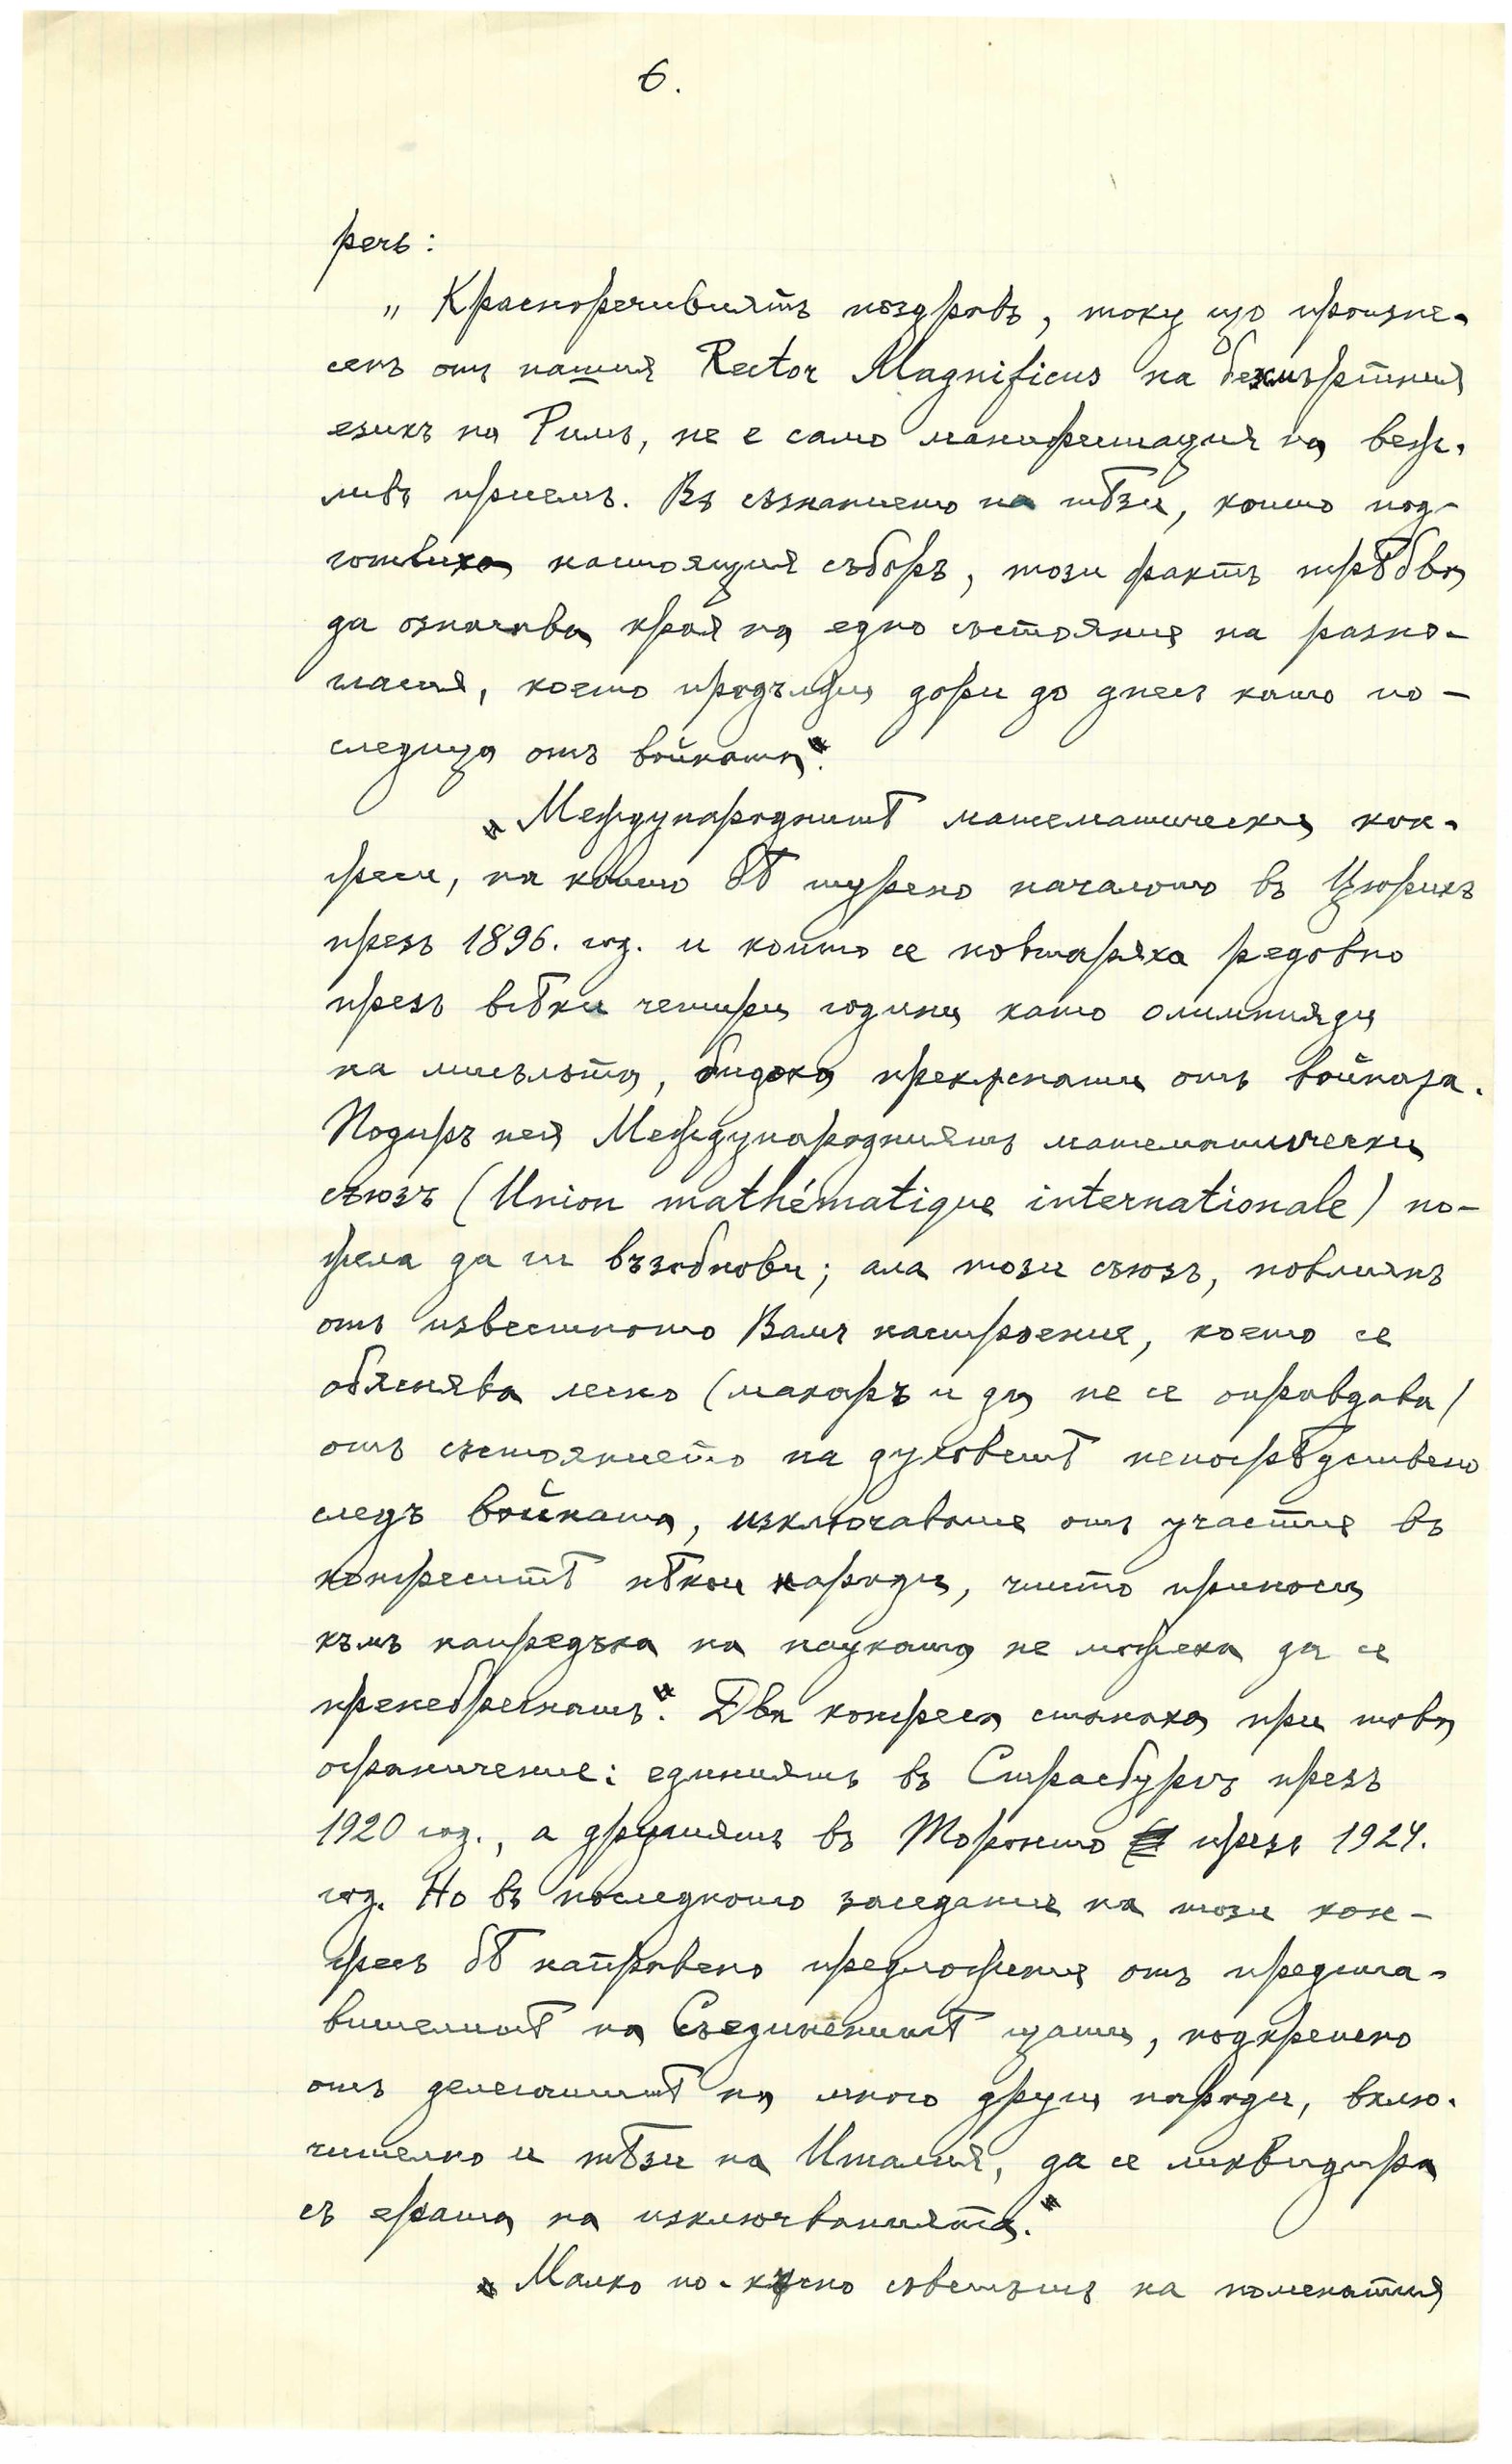 6.
речь:
„ Красноречивиятъ поздравъ, току що произне-
сенъ отъ нашия Rector Magnificus на безсмъртния
езикъ на Римъ, не е само манифестация на веж-
ливъ приемъ. Въ съзнанието на тѣзи, които под-
готвиха настоящия съборъ, този фактъ трѣбва
да означава край на едно състояние на разно-
гласия, което продължи дори до днесъ като по-
следица отъ войната“.
„Международнитѣ математически кон-
греси, на които бѣ турено началото въ Цюрихъ
презъ 1896. год. и които се повтаряха редовно
презъ всѣки четири години като олимпияди
на мисъльта, бидоха прекъснати отъ войната.
Подиръ нея Международниятъ математически
съюзъ (Union mathématique internationale) по-
жела да ги възобнови; ала този съюзъ, повлиянъ
отъ известното Вамъ настроение, което се
обяснява лесно (макаръ и да не се оправдава)
отъ състоянието на духоветѣ непосрѣдствено
следъ войната, изключаваше отъ участие въ
конгреситѣ нѣкои народи, чиито приноси
къмъ напредъка на науката не можеха да се
пренебрегнатъ“. Два конгреса станаха при това
ограничение: единиятъ въ Страсбургъ презъ
1920 год., а другиятъ въ Торонто презъ 1924.
год. Но въ последното заседание на този кон-
гресъ бѣ направено предложение отъ предста-
вителитѣ на Съединенитѣ щати, подкрепено
отъ делегатитѣ на много други народи, вклю-
чително и тѣзи на Италия, да се ликвидира
съ ерата на изключванията.“
„Малко по-късно съветътъ на поменатия